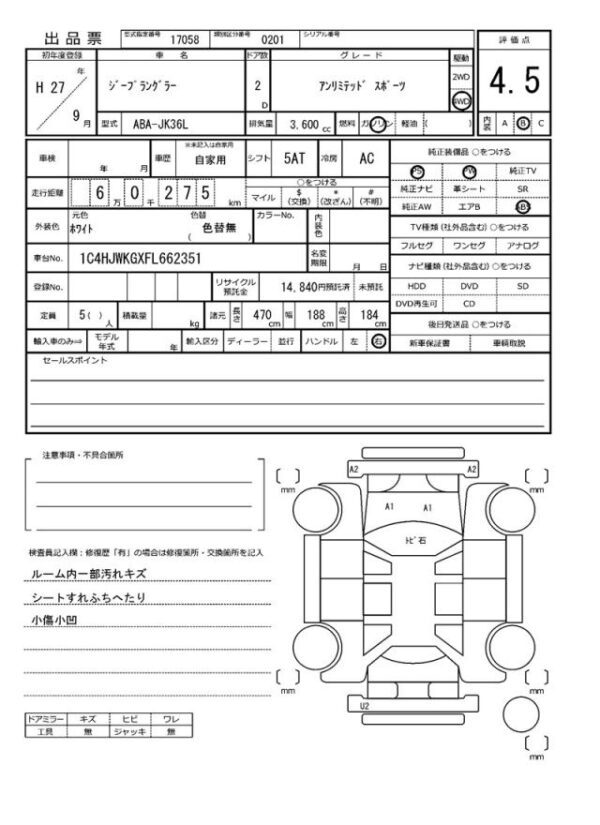 出品票 型式指定番号 17058 類別区分番号 0201 シリアル番号
評価点
4.5
内装 A B C
初年度登録 車名 ドア数 グレード 駆動
H 27 年 9 月
ジープラングラー 2 D アンリミテッド スポーツ
2WD
4WD
型式 ABA-JK36L 排気量 3,600 cc 燃料 ガソリン 軽油 ( )
車検 年 月 車歴 ※未記入は自家用 自家用 シフト 5AT 冷房 AC
走行距離 6 万 0 千 2 7 5 km
○をつける
マイル $ (交換) * (改ざん) # (不明)
外装色 元色 ホワイト 色替 ( 色替無 ) カラーNo. 内装色
車台No. 1C4HJWKGXFL662351 名変期限 月 日
登録No. リサイクル預託金 14,840円預託済 未預託
定員 5 ( ) 人 積載量 kg 諸元 長さ 470 cm 幅 188 cm 高さ 184 cm
輸入車のみ⇒ モデル年式 年 輸入区分 ディーラー 並行 ハンドル 左 右
純正装備品 ○をつける
PS PW 純正TV
純正ナビ 革シート SR
純正AW エアB ABS
TV種類 (社外品含む) ○をつける
フルセグ ワンセグ アナログ
ナビ種類 (社外品含む) ○をつける
HDD DVD SD
DVD再生可 CD
後日発送品 ○をつける
新車保証書 車輌取説
セールスポイント
注意事項・不具合箇所
検査員記入欄：修復歴「有」の場合は修復箇所・交換箇所を記入
ルーム内一部汚れキズ
シートすれふちへたり
小傷小凹
ドアミラー キズ ヒビ ワレ
工具 無 ジャッキ 無
A2 A2
( ) mm ( ) mm
A1 A1
トビ石
( ) mm ( ) mm
U2
( ) mm